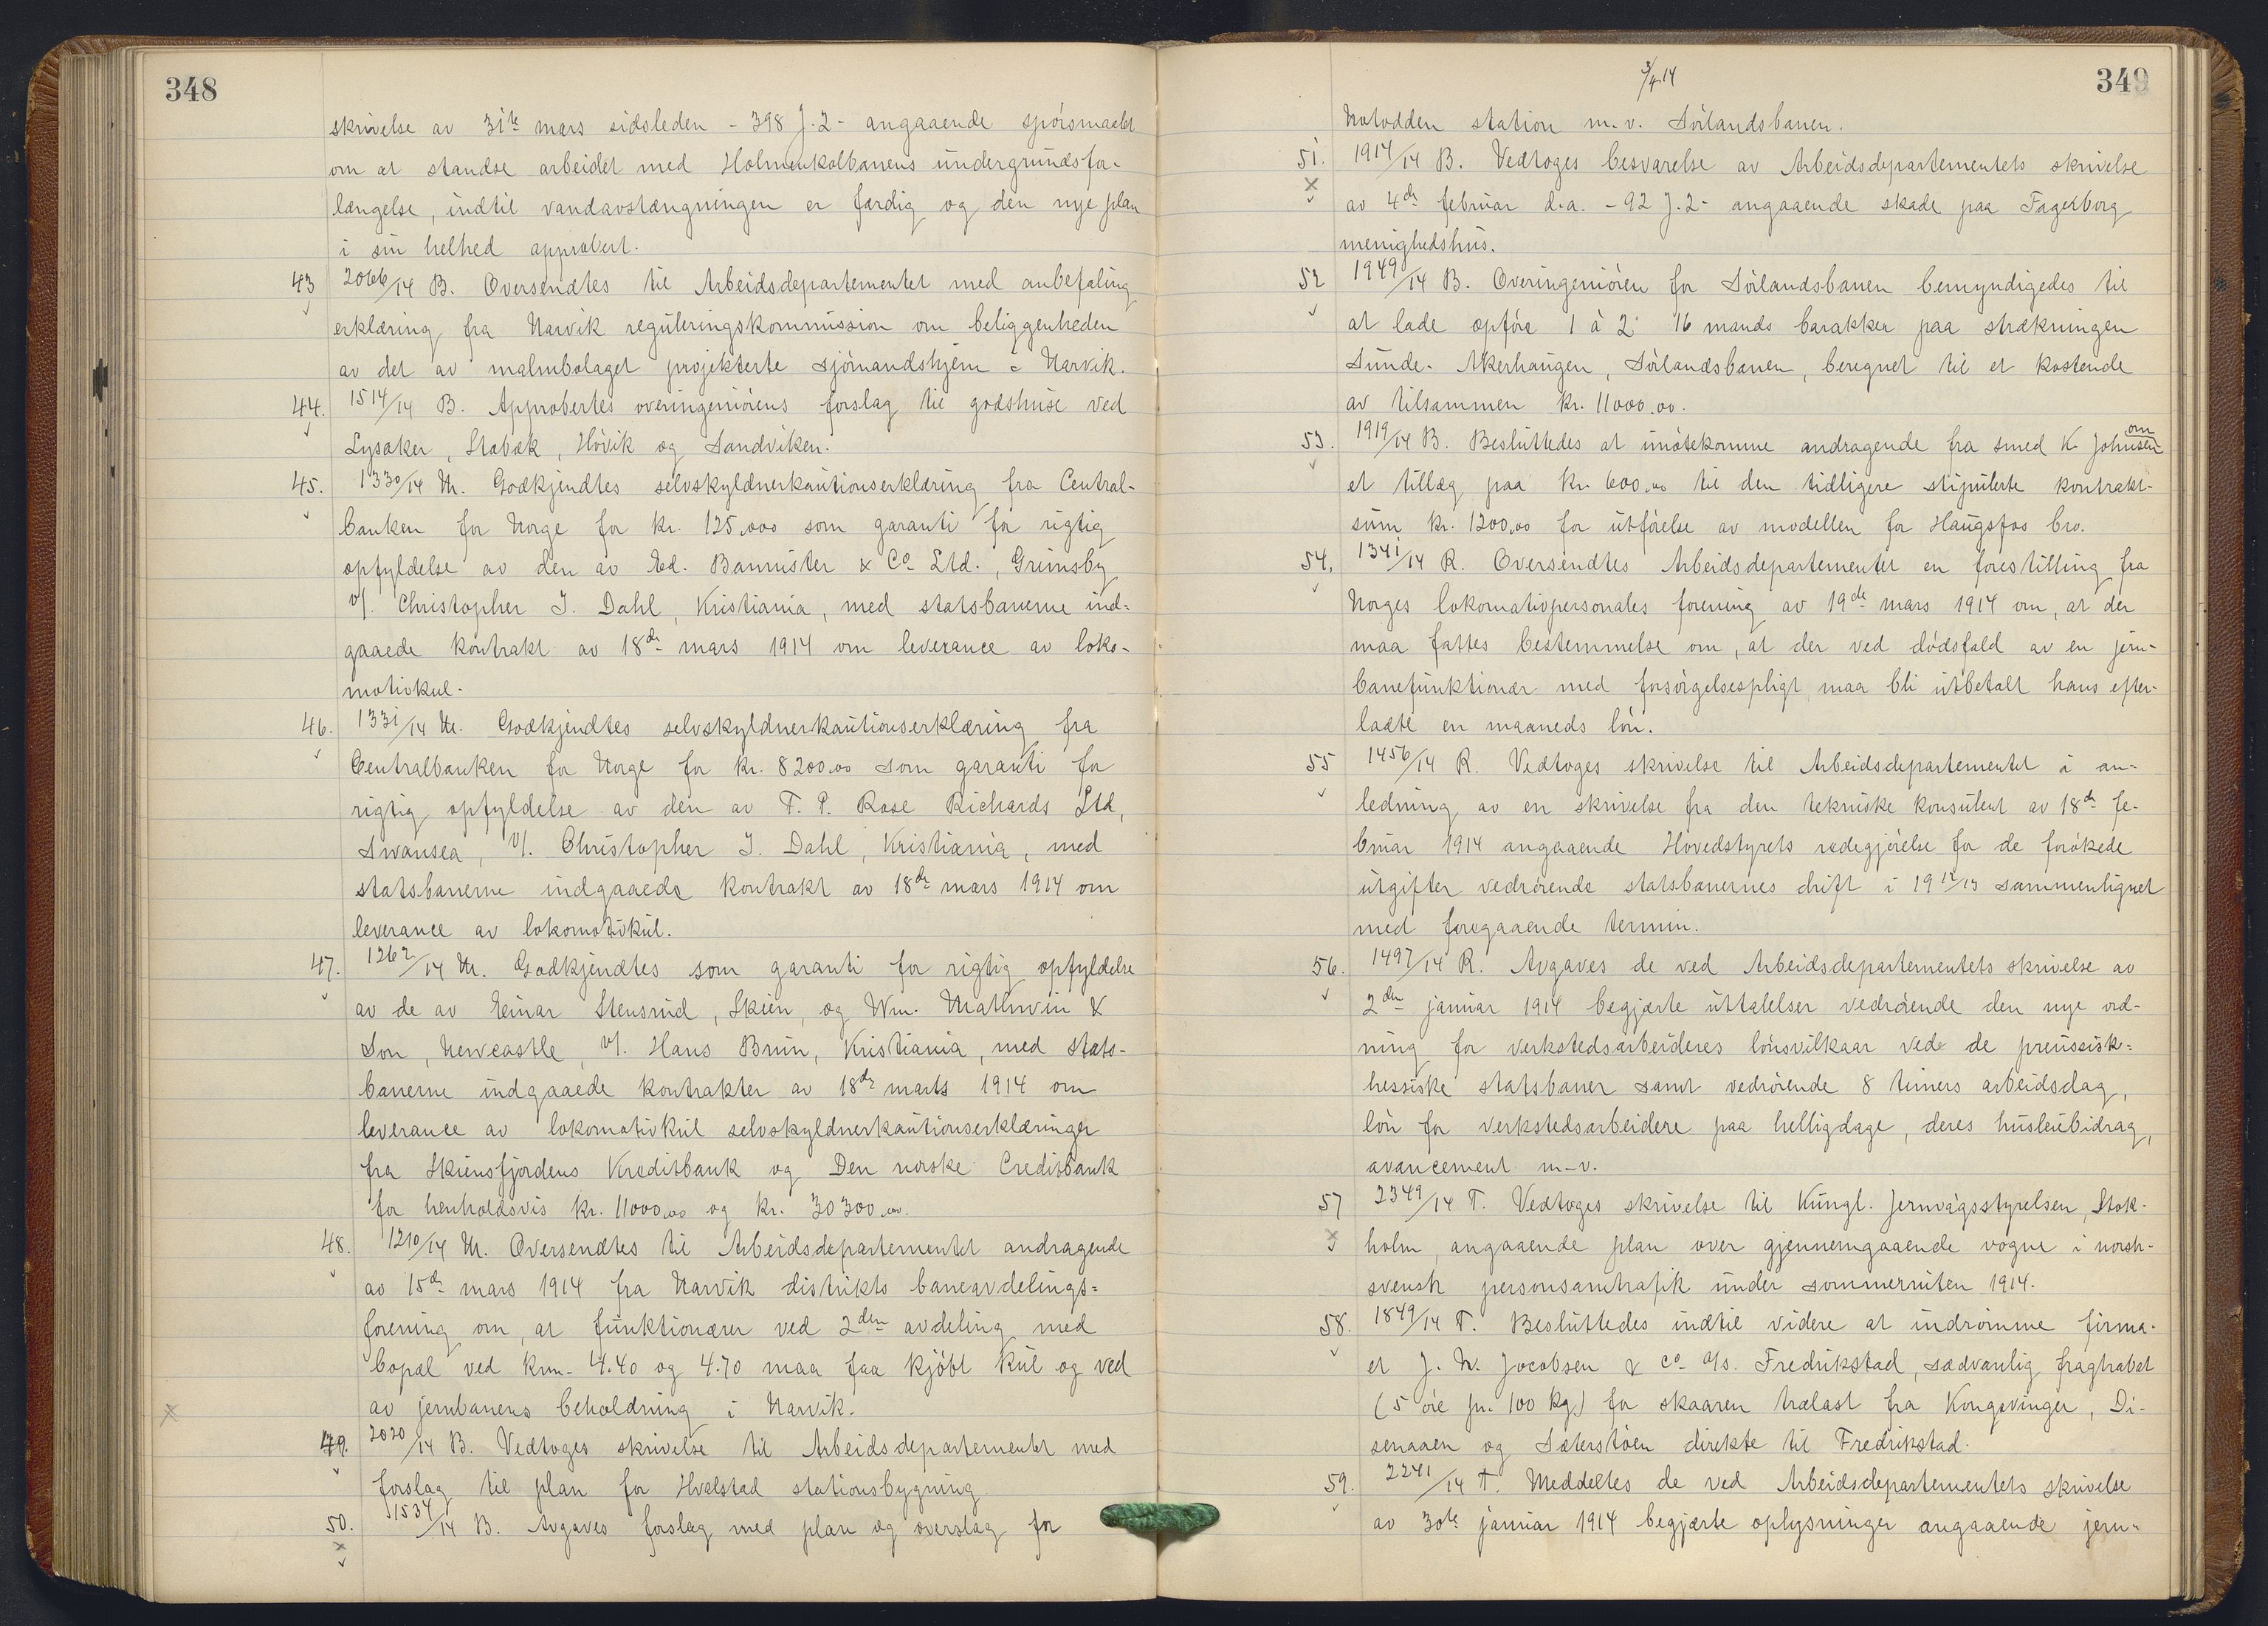 348
skrivelse av 31te mars sidsleden - 398 J. 2 - angaaende spörsmaalet
om at standse arbeidet med Holmenkolbanens undergrundsfor-
længelse, indtil vandavstængningen er færdig og den nye plan
i sin helhed approbert.
43 2066/14 B. Oversendtes til Arbeidsdepartementet med anbefaling
erklæring fra Narvik reguleringskommission om beliggenheden
av det av malmbolaget projekterte sjömandshjem i Narvik.
44. 1514/14 B. Approbertes overingeniörens forslag til godshuse ved
Lysaker, Stabæk, Hövik og Sandviken.
45. 1330/14 M. Godkjendtes selvskyldnerkautionserklæring fra Central-
banken for Norge for kr. 125.000 som garanti for rigtig
opfyldelse av den av Ed. Bannister & Co Ltd., Grimsby
v/. Christopher J. Dahl, Kristiania, med statsbanerne ind-
gaaede kontrakt av 18de mars 1914 om leverance av loko-
motivkul.
46. 1331/14 M. Godkjendtes selvskyldnerkautionserklæring fra
Centralbanken for Norge for kr. 8200.00 som garanti for
rigtig opfyldelse av den av T. P. Rose Richards Ltd,
Swansea, v/. Christopher J. Dahl, Kristiania, med
statsbanerne indgaaede kontrakt av 18de mars 1914 om
leverance av lokomotivkul.
47. 1262/14 M. Godkjendtes som garanti for rigtig opfyldelse
av de av Einar Stensrud, Skien, og Wm. Mathwin &
Son, Newcastle, v/. Hans Bruun, Kristiania, med stats-
banerne indgaaede kontrakter av 18de marts 1914 om
leverance av lokomotivkul selvskyldnerkautionserklæringer
fra Skiensfjordens Kreditbank og Den norske Creditbank
for henholdsvis kr. 11000.00 og kr. 30300.00.
48. 1210/14 M. Oversendtes til Arbeidsdepartementet andragende
av 15de mars 1914 fra Narvik distrikts baneavdelings-
forening om, at funktionærer ved 2den avdeling med
bopæl ved km. 4.40 og 4.70 maa faa kjöbt kul og ved
av jernbanens beholdning i Narvik.
49. 2020/14 B. Vedtoges skrivelse til Arbeidsdepartementet med
forslag til plan for Hvalstad stationsbygning
50. 1534/14 B. Avgaves forslag med plan og overslag for
3/4 14
349
Notodden station m.v. Sörlandsbanen.
51. 1914/14 B. Vedtoges besvarelse av Arbeidsdepartementets skrivelse
av 4de februar d.a. - 92 J. 2 - angaaende skade paa Fagerborg
menighedshus.
52 1949/14 B. Overingeniören for Sörlandsbanen bemyndigedes til
at lade opföre 1 à 2 16 mands barakker paa strækningen
Sunde - Akerhaugen, Sörlandsbanen, beregnet til et kostende
av tilsammen kr. 11000.00.
53. 1919/14 B. Besluttedes at imötekomme andragende fra smed K. Johnsen om
et tillæg paa kr. 600.00 til den tidligere stipulerte kontrakt-
sum kr. 1200.00 for utförelse av modellen for Haugsfos bro.
54. 1341/14 R. Oversendtes Arbeidsdepartementet en forestilling fra
Norges lokomotivpersonales forening av 19de mars 1914 om, at der
maa fattes bestemmelse om, at der ved dödsfald av en jern-
banefunktionær med forsörgelsespligt maa bli utbetalt hans efter-
ladte en maaneds lön.
55 1456/14 R. Vedtoges skrivelse til Arbeidsdepartementet i an-
ledning av en skrivelse fra den tekniske konsulent av 18de fe-
bruar 1914 angaaende Hovedstyrets redegjörelse for de forökede
utgifter vedrörende statsbanernes drift i 1912/13 sammenlignet
med foregaaende termin.
56. 1497/14 R. Avgaves de ved Arbeidsdepartementets skrivelse av
2den januar 1914 begjærte uttalelser vedrörende den nye ord-
ning for verkstedsarbeideres lönsvilkaar ved de preussisk-
hessiske statsbaner samt vedrörende 8 timers arbeidsdag,
lön for verkstedsarbeidere paa helligdage, deres husleiebidrag,
avancement m.v.
57 2349/14 T. Vedtoges skrivelse til Kungl. Jernvägsstyrelsen, Stok-
holm, angaaende plan over gjennemgaaende vogne i norsk-
svensk personsamtrafik under sommerruten 1914.
58. 1849/14 T. Besluttedes indtil videre at indrömme firma-
et J. N. Jacobsen & Co A/S. Fredrikstad, sædvanlig fragtrabat
(5 öre pr. 100 kg) for skaaren trælast fra Kongsvinger, Di-
senaaen og Sæterstöen direkte til Fredrikstad.
59. 2241/14 T. Meddeltes de ved Arbeidsdepartementets skrivelse
av 30te januar 1914 begjærte oplysninger angaaende jern-